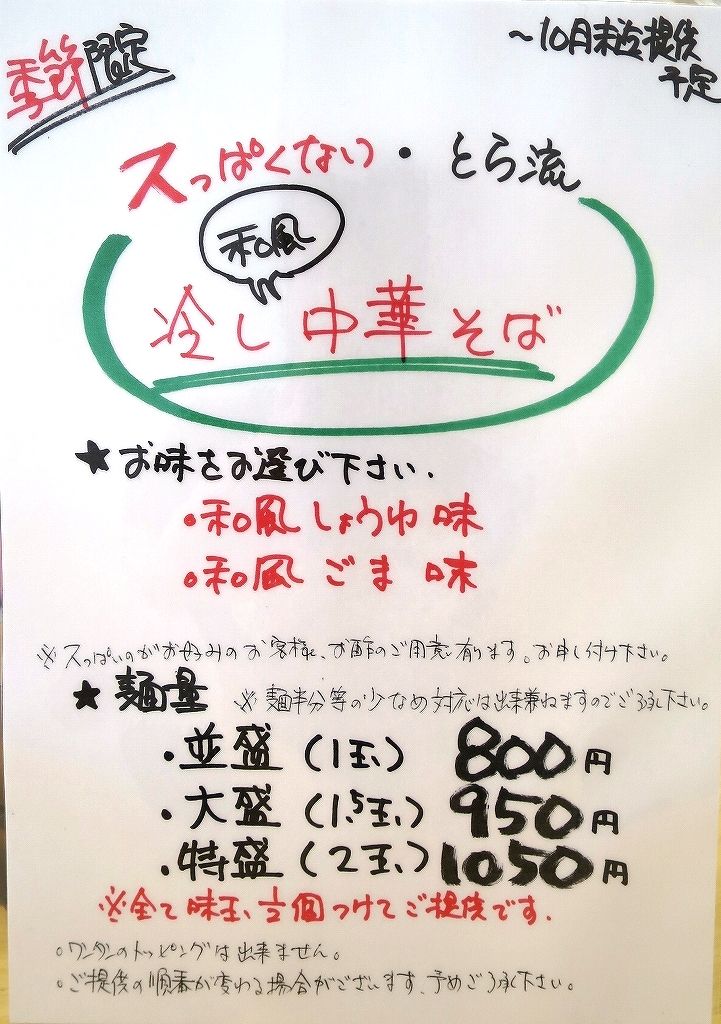 季節限定
～10月末迄提供
予定
スっぱくない・とら流
和風
冷し中華そば
★お味をお選び下さい.
・和風しょうゆ味
・和風ごま味
※スっぱいのがお好みのお客様、お酢のご用意有ります。お申し付け下さい。
★麺量 ※麺半分等の少なめ対応は出来兼ねますのでご了承下さい。
・並盛(1玉) 800円
・大盛(1.5玉) 950円
・特盛(2玉) 1050円
※全て味玉½個つけてご提供です.
○ワンタンのトッピングは出来ません。
○ご提供の順番が変わる場合がございます、予めご了承下さい。